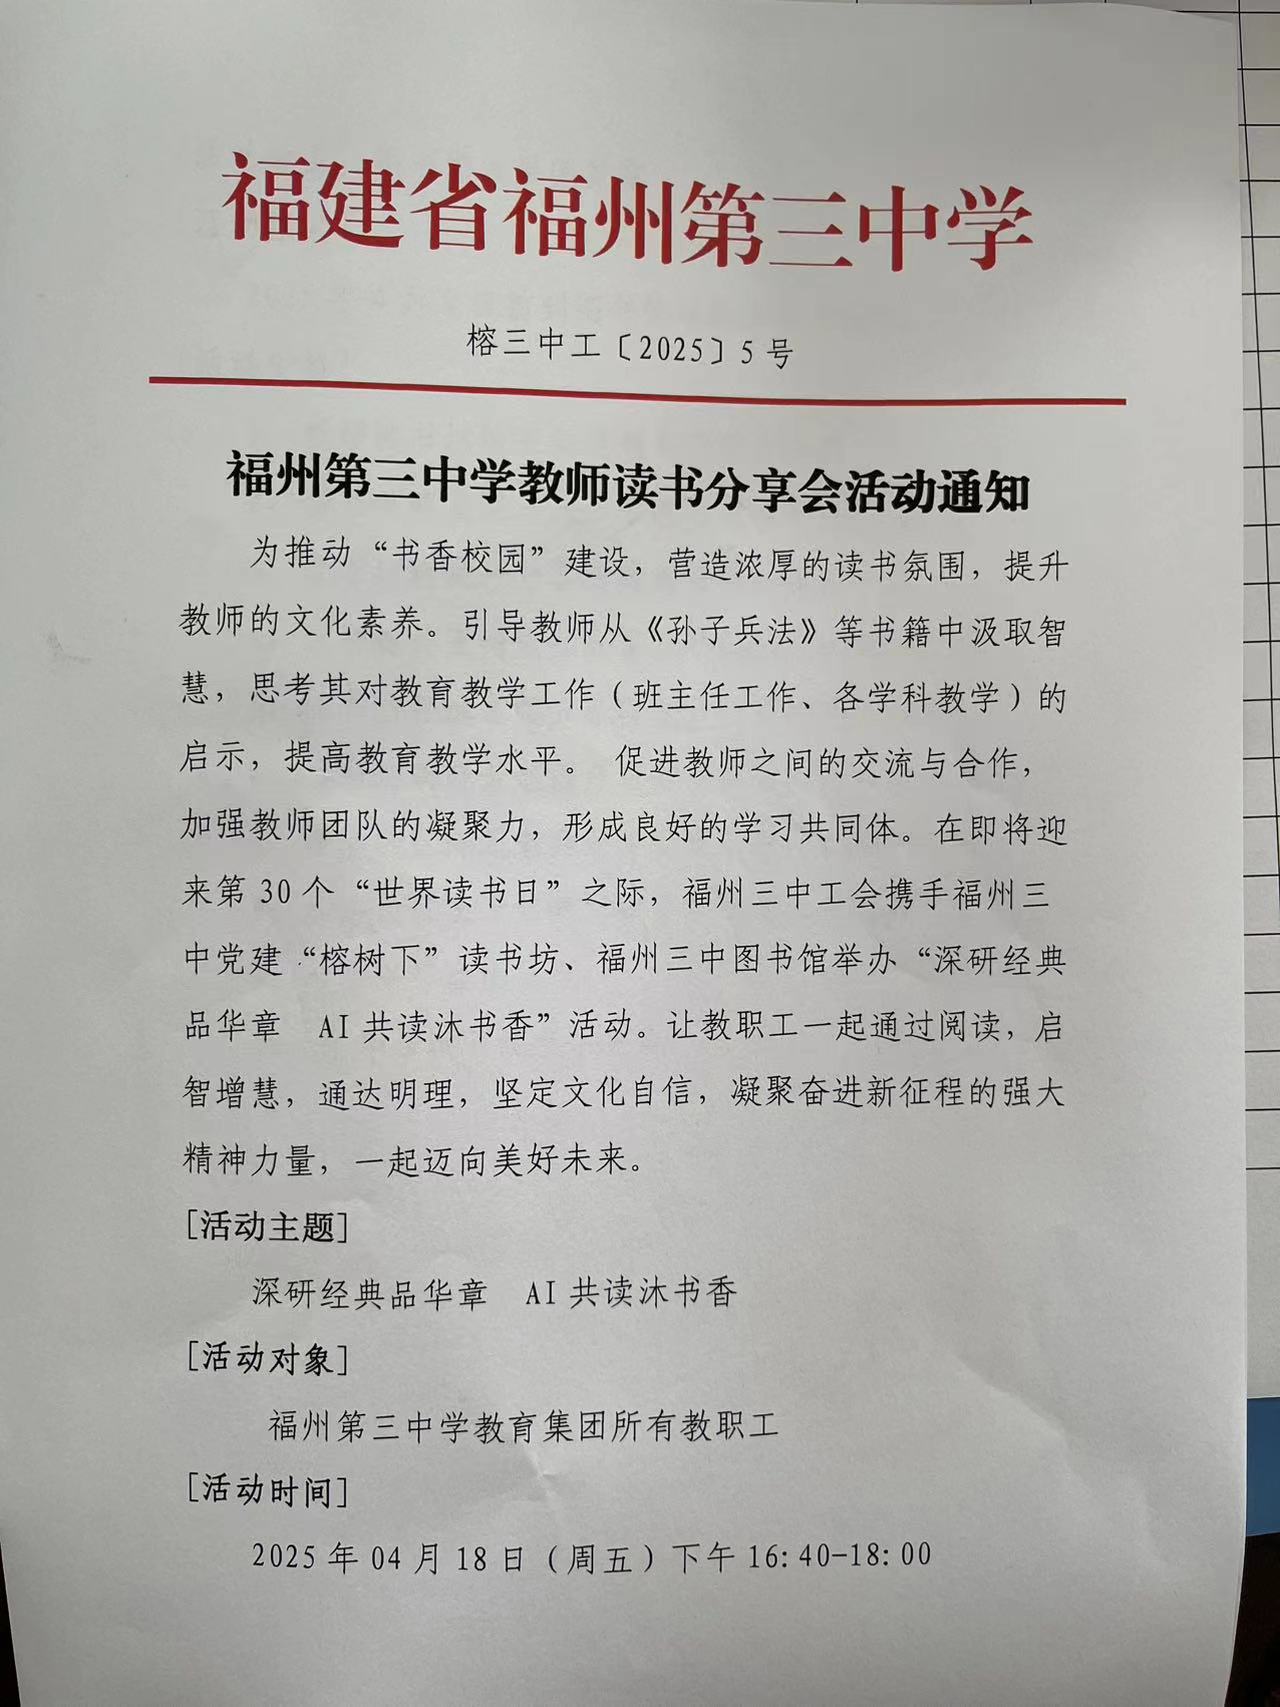 福建省福州第三中学
榕三中工〔2025〕5号
福州第三中学教师读书分享会活动通知
为推动“书香校园”建设，营造浓厚的读书氛围，提升
教师的文化素养。引导教师从《孙子兵法》等书籍中汲取智
慧，思考其对教育教学工作（班主任工作、各学科教学）的
启示，提高教育教学水平。 促进教师之间的交流与合作，
加强教师团队的凝聚力，形成良好的学习共同体。在即将迎
来第 30 个“世界读书日”之际，福州三中工会携手福州三
中党建“榕树下”读书坊、福州三中图书馆举办“深研经典
品华章　AI 共读沐书香”活动。让教职工一起通过阅读，启
智增慧，通达明理，坚定文化自信，凝聚奋进新征程的强大
精神力量，一起迈向美好未来。
[活动主题]
深研经典品华章　AI 共读沐书香
[活动对象]
福州第三中学教育集团所有教职工
[活动时间]
2025 年 04 月 18 日（周五）下午 16:40-18:00